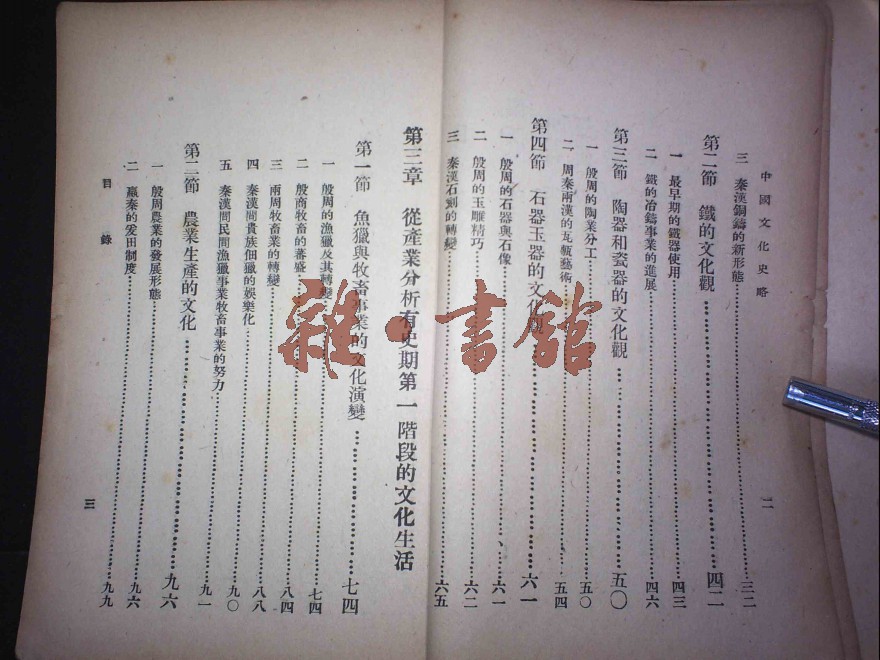 中國文化史略
二
三 秦漢銅鑄的新形態…三二
第二節 鐵的文化觀…四二
一 最早期的鐵器使用…四三
二 鐵的冶鑄事業的進展…四六
第三節 陶器和瓷器的文化觀…五〇
一 殷周的陶業分工…五〇
二 周秦兩漢的瓦甎藝術…五四
第四節 石器玉器的文化觀…六一
一 殷周的石器與石像…六一
二 殷周的玉雕精巧…六二
三 秦漢石刻的轉變…六五
第三章 從產業分析有史期第一階段的文化生活
第一節 魚獵與牧畜事業的文化演變…七四
一 殷周的漁獵及其轉變…七四
二 殷商牧畜的蕃盛…八四
三 兩周牧畜業的轉變…八八
四 秦漢間貴族佃獵的娛樂化…九〇
五 秦漢間民間漁獵事業牧畜事業的努力…九一
第二節 農業生產的文化…九六
一 殷周農業的發展形態…九六
二 嬴秦的爰田制度…九九
目錄
三
雜·書館